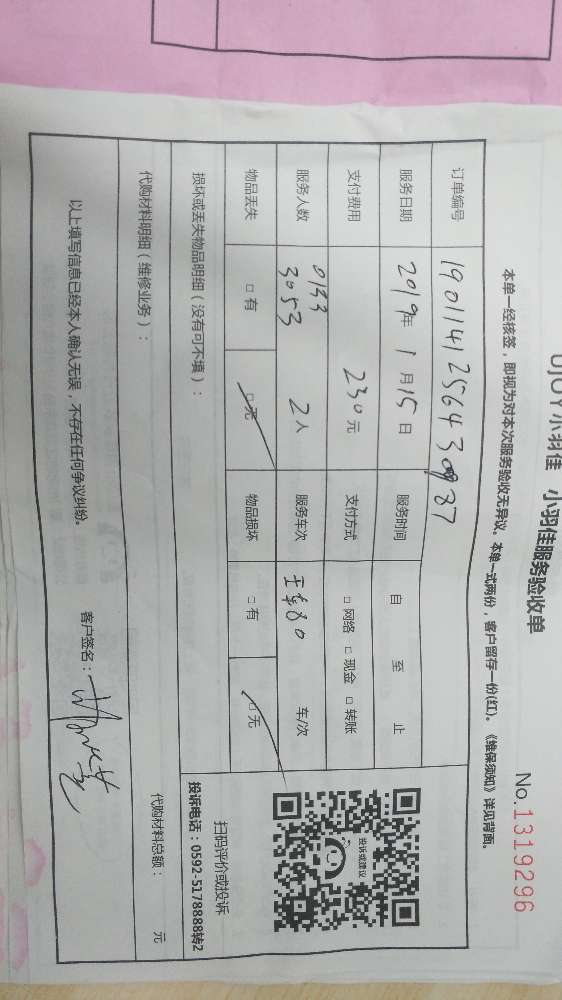 UJOY小羽佳 小羽佳服务验收单
No.1319296
本单一经核签，即视为对本次服务验收无异议。本单一式两份，客户留存一份(红)。《维保须知》详见背面。
订单编号
服务日期 2019年 1 月 15 日 服务时间 自 至 止
支付费用 230元 支付方式 □ 网络 □ 现金 □ 转账
服务人数 0133 3053 2人 服务车次 车/次
物品丢失 □ 有 □ 无 物品损坏 □ 有 □ 无
损坏或丢失物品明细（没有可不填）：
投诉或建议
扫码评价或投诉
投诉电话：0592-5178888转2
代购材料明细（维修业务）：
代购材料总额： 元
以上填写信息已经本人确认无误，不存在任何争议纠纷。
客户签名：